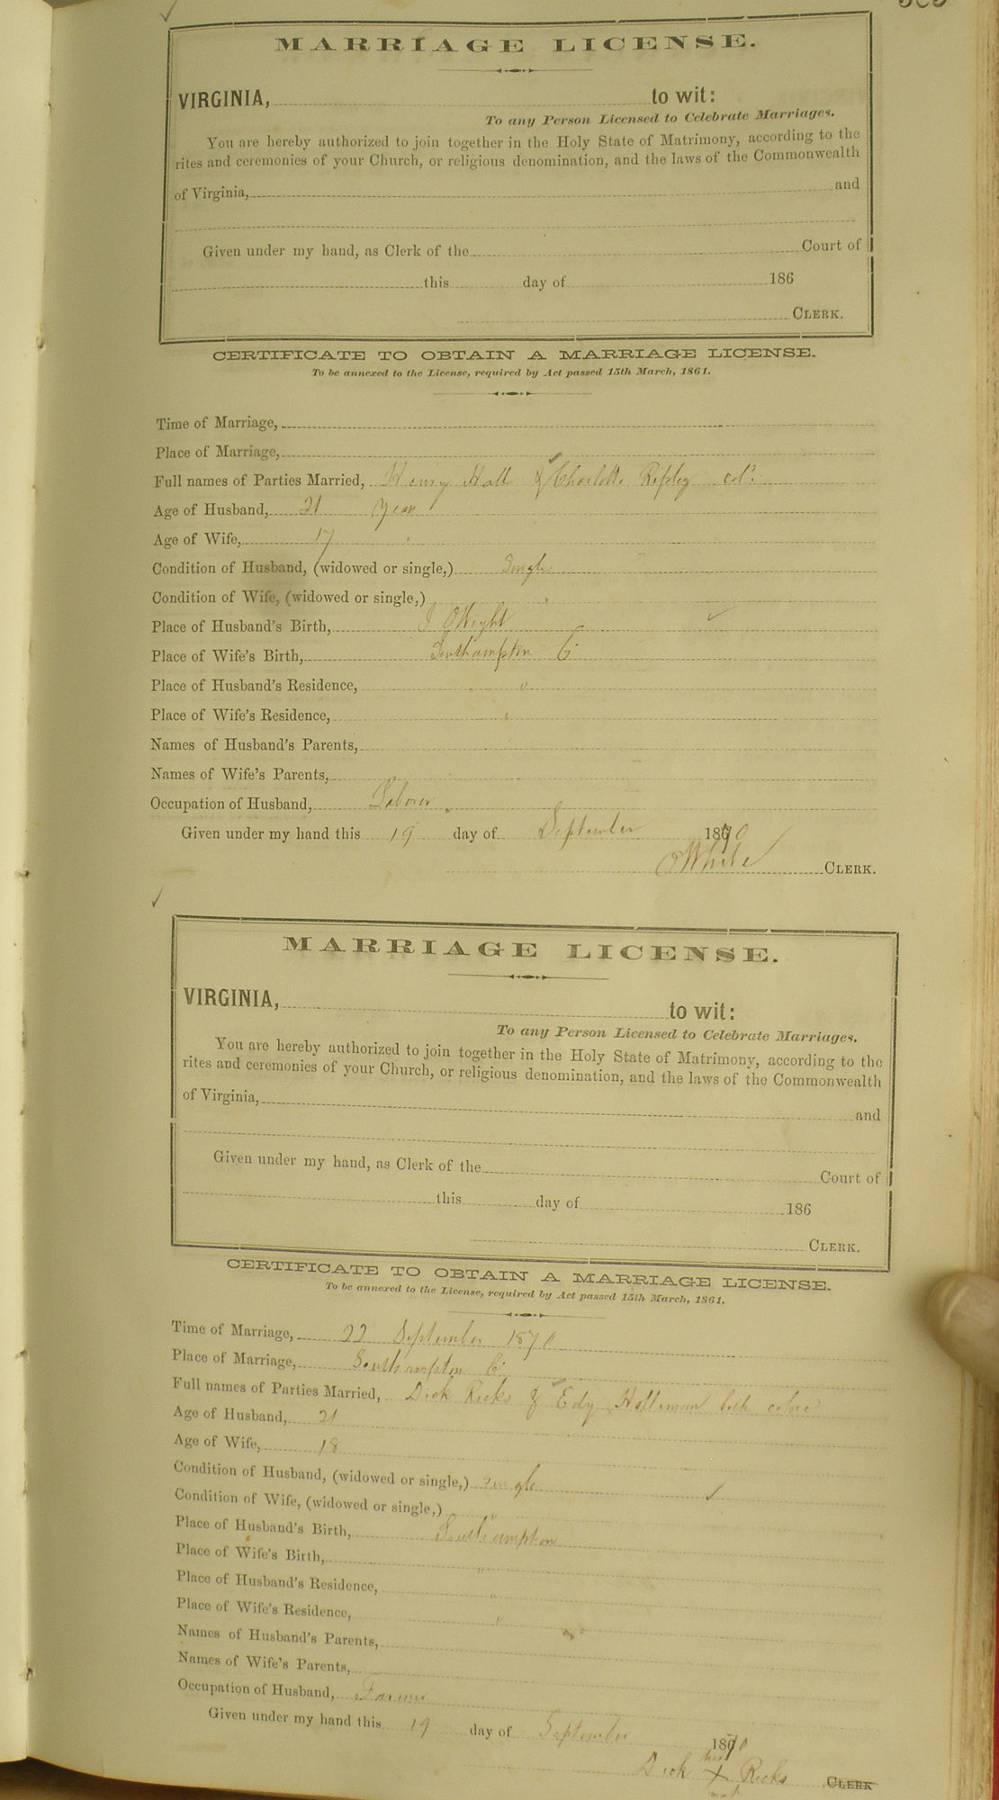 MARRIAGE LICENSE.
VIRGINIA, to wit:
To any Person Licensed to Celebrate Marriages.
You are hereby authorized to join together in the Holy State of Matrimony, according to the
rites and ceremonies of your Church, or religious denomination, and the laws of the Commonwealth
of Virginia, and
Given under my hand, as Clerk of the Court of
this day of 186
CLERK.
CERTIFICATE TO OBTAIN A MARRIAGE LICENSE.
To be annexed to the License, required by Act passed 15th March, 1861.
Time of Marriage,
Place of Marriage,
Full names of Parties Married, Henry Hall & Charlotte Ripley cold
Age of Husband, 21 year
Age of Wife, 17 "
Condition of Husband, (widowed or single,) Single
Condition of Wife, (widowed or single,) "
Place of Husband's Birth, I O Wight
Place of Wife's Birth, Southampton Co
Place of Husband's Residence, "
Place of Wife's Residence, "
Names of Husband's Parents,
Names of Wife's Parents,
Occupation of Husband, Laborer
Given under my hand this 19 day of September 1870
White CLERK.
MARRIAGE LICENSE.
VIRGINIA, to wit:
To any Person Licensed to Celebrate Marriages.
You are hereby authorized to join together in the Holy State of Matrimony, according to the
rites and ceremonies of your Church, or religious denomination, and the laws of the Commonwealth
of Virginia, and
Given under my hand, as Clerk of the Court of
this day of 186
CLERK.
CERTIFICATE TO OBTAIN A MARRIAGE LICENSE.
To be annexed to the License, required by Act passed 15th March, 1861.
Time of Marriage, 22 September 1870
Place of Marriage, Southampton Co
Full names of Parties Married, Dick Ricks & Edy Holleman both
Age of Husband, 21
Age of Wife, 18
Condition of Husband, (widowed or single,) Single
Condition of Wife, (widowed or single,) "
Place of Husband's Birth, Southampton
Place of Wife's Birth, "
Place of Husband's Residence, "
Place of Wife's Residence, "
Names of Husband's Parents,
Names of Wife's Parents,
Occupation of Husband, Farmer
Given under my hand this 19 day of September 1870
his
Dick X Ricks CLERK